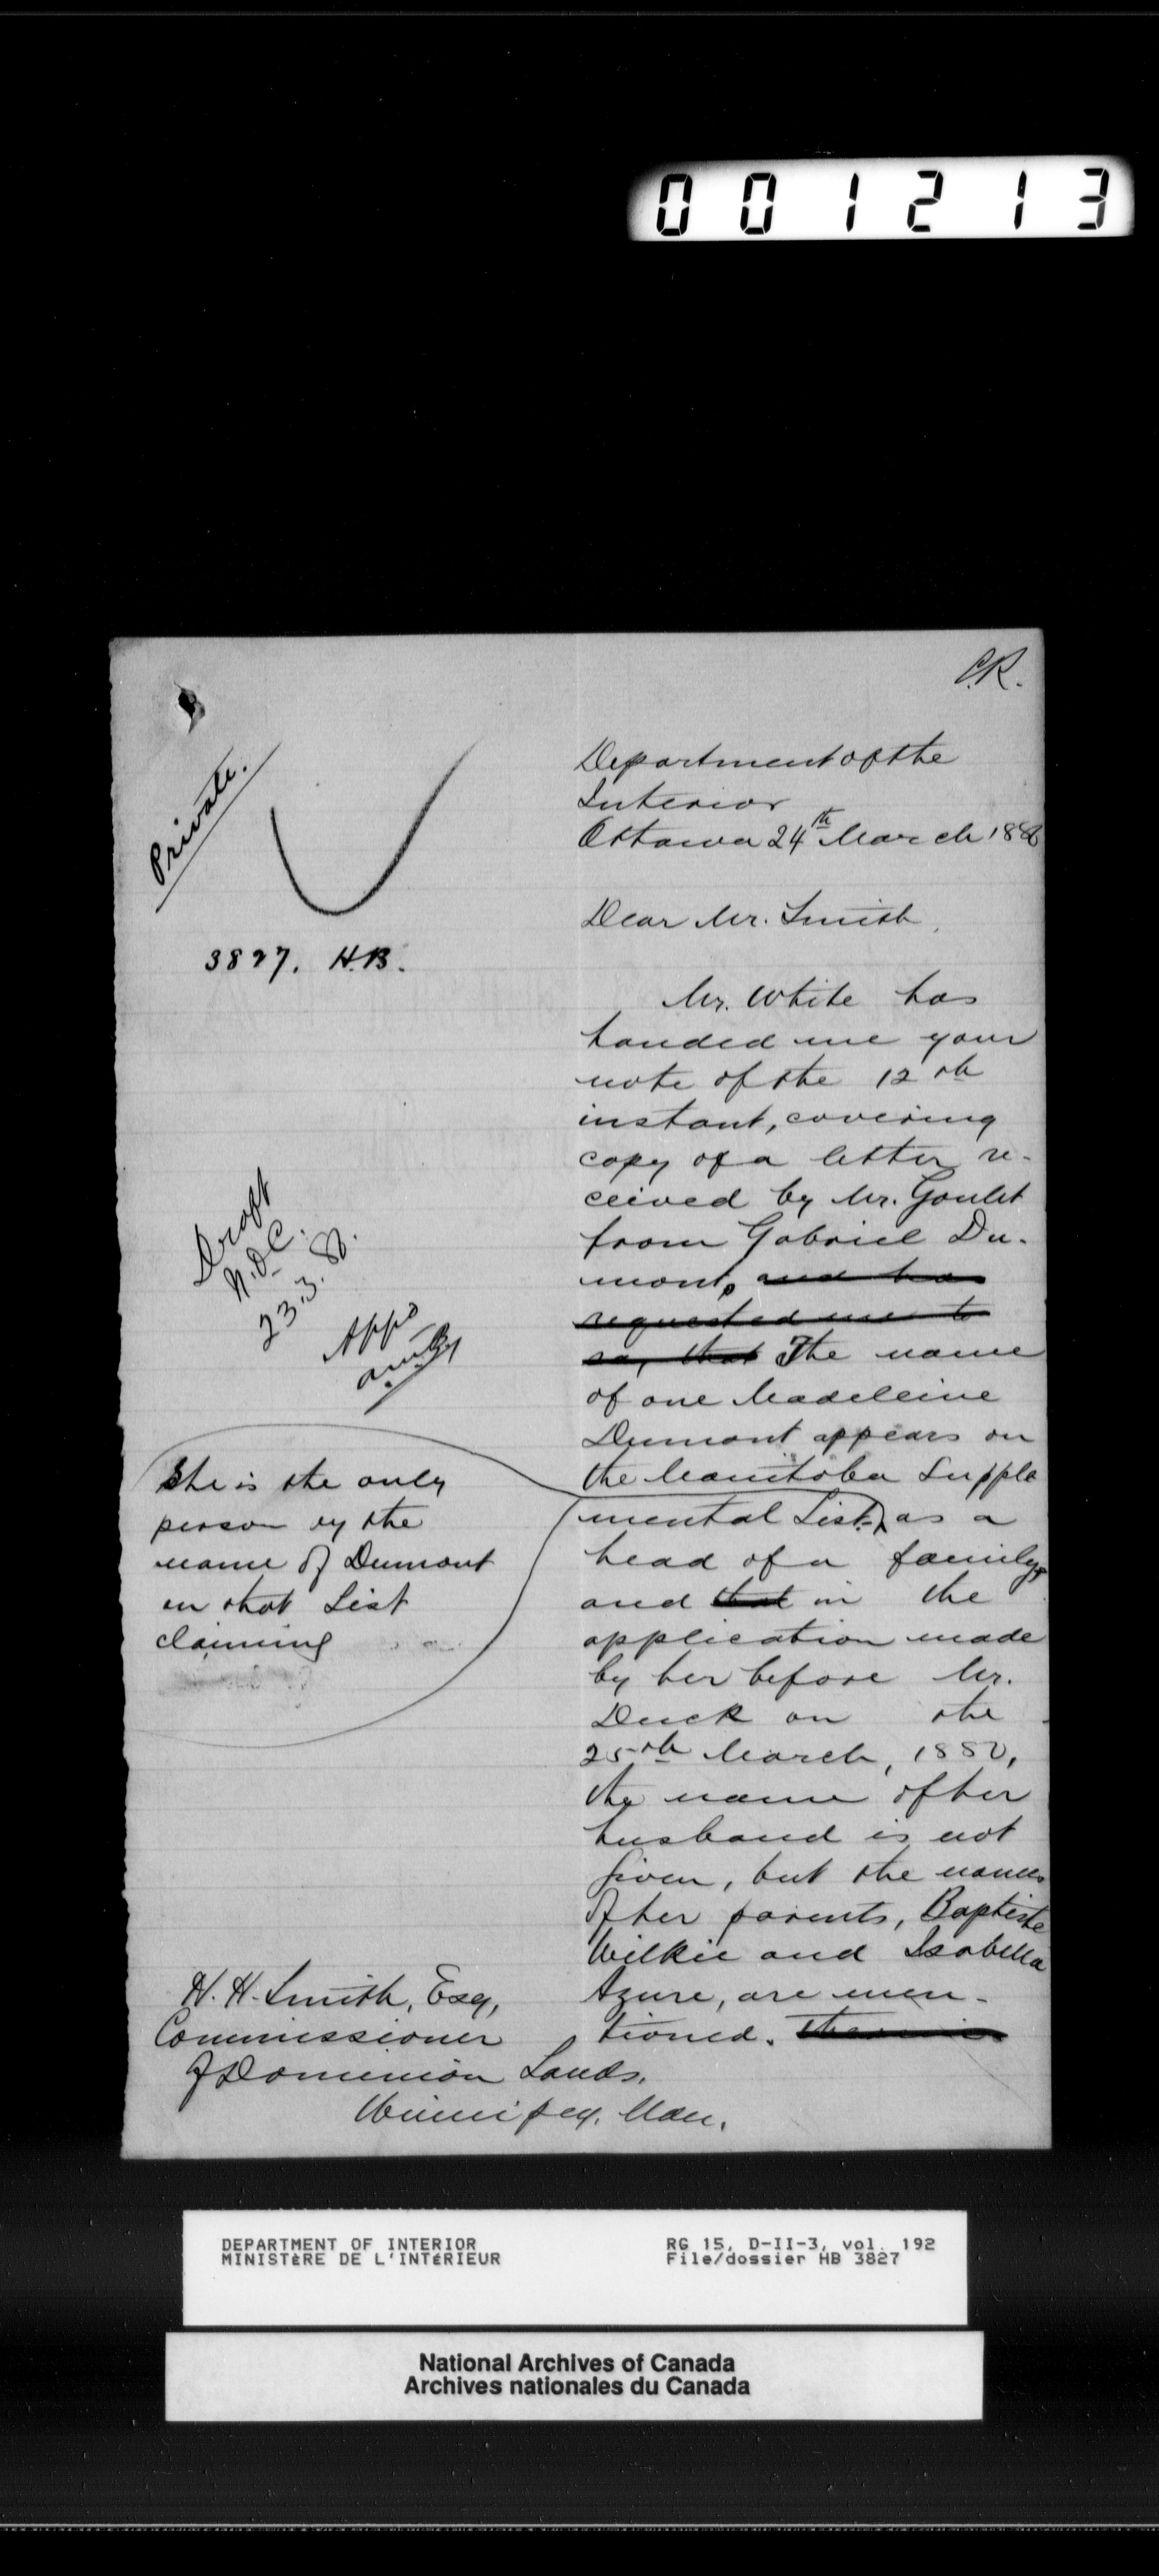 001213
C.R.
Private.
Department of the
Interior
Ottawa 24th March 188
3827. H.B.
Dear Mr. Smith,
Mr. White has
handed me your
note of the 12th
instant, covering
copy of a letter re-
ceived by Mr. Goulet
from Gabriel Du-
mont, and has
requested me to
say that The name
of one Madeleine
Dumont appears on
the Manitoba Supple
mental List, as a
head of a family,
and that in the
application made
by her before Mr.
Duck on the
25th March, 1880,
the name of her
husband is not
given, but the names
of her parents, Baptiste
Wilkie and Isabella
Azure, are men-
tioned.
Draft
N.O.C.
23.3.8
Appd
She is the only
person by the
name of Dumont
on that List
claiming
H. H. Smith, Esq,
Commissioner
of Dominion Lands,
Winnipeg, Man.
DEPARTMENT OF INTERIOR
MINISTÈRE DE L'INTÉRIEUR
RG 15, D-II-3, vol. 192
File/dossier HB 3827
National Archives of Canada
Archives nationales du Canada